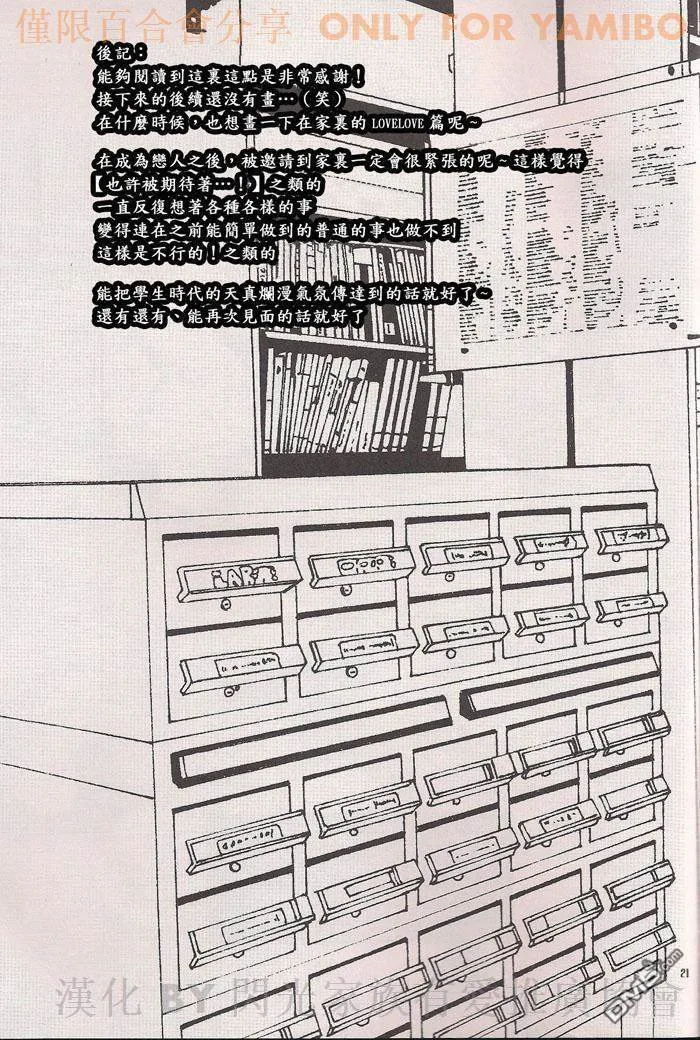 僅限百合會分享 ONLY FOR YAMIBO
後記：
能夠閱讀到這裏這點是非常感謝！
接下來的後續還沒有畫…（笑）
在什麼時候，也想畫一下在家裏的 LOVELOVE 篇呢~
在成為戀人之後，被邀請到家裏一定會很緊張的呢~這樣覺得
【也許被期待著…！】之類的
一直反復想著各種各樣的事
變得連在之前能簡單做到的普通的事也做不到
這樣是不行的！之類的
能把學生時代的天真爛漫氣氛傳達到的話就好了~
還有還有、能再次見面的話就好了
21
漢化 BY 閃光家族百愛推廣協會
DM5.com